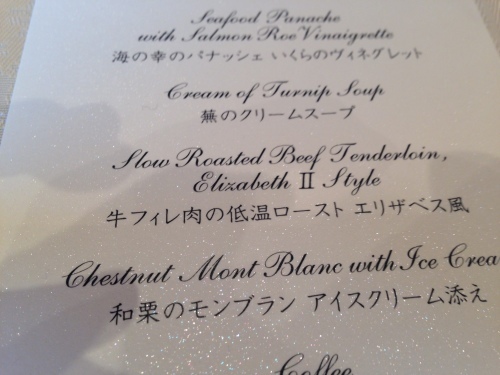 Seafood Panache
with Salmon Roe Vinaigrette
海の幸のパナッシェ いくらのヴィネグレット
Cream of Turnip Soup
蕪のクリームスープ
Slow Roasted Beef Tenderloin,
Elizabeth II Style
牛フィレ肉の低温ロースト エリザベス風
Chestnut Mont Blanc with Ice Crea
和栗のモンブラン アイスクリーム添え
Coffee